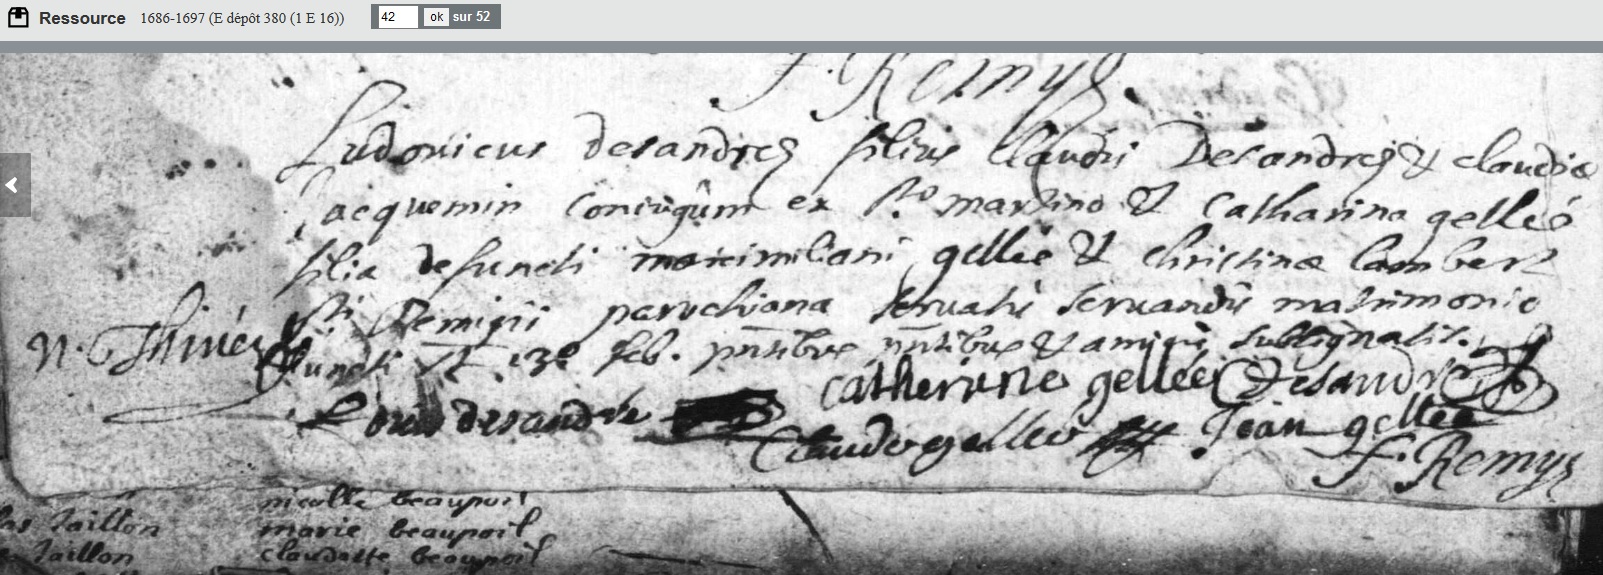 Ressource 1686-1697 (E dépôt 380 (1 E 16)) 42 ok sur 52
F. Remy
Ludovicus desandres filius Claudii Desandres & claudiæ
Jacquemin Coniugûm ex Sto martino & Catharina gellée
filia defuncti maximiliani gellée & christinæ lambert
Sti Remigii parochiana servatis servandis matrimonio
Juncti st 13a feb. pntibus & amicis subsignatis.
N. Thiriet
catherine gellée C Desandre
Louis desandre
Claude gellee Jean gellee
F. Remy
nicolle beaupoil
las Jaillon marie beaupoil
Jaillon claudatte beaupoil